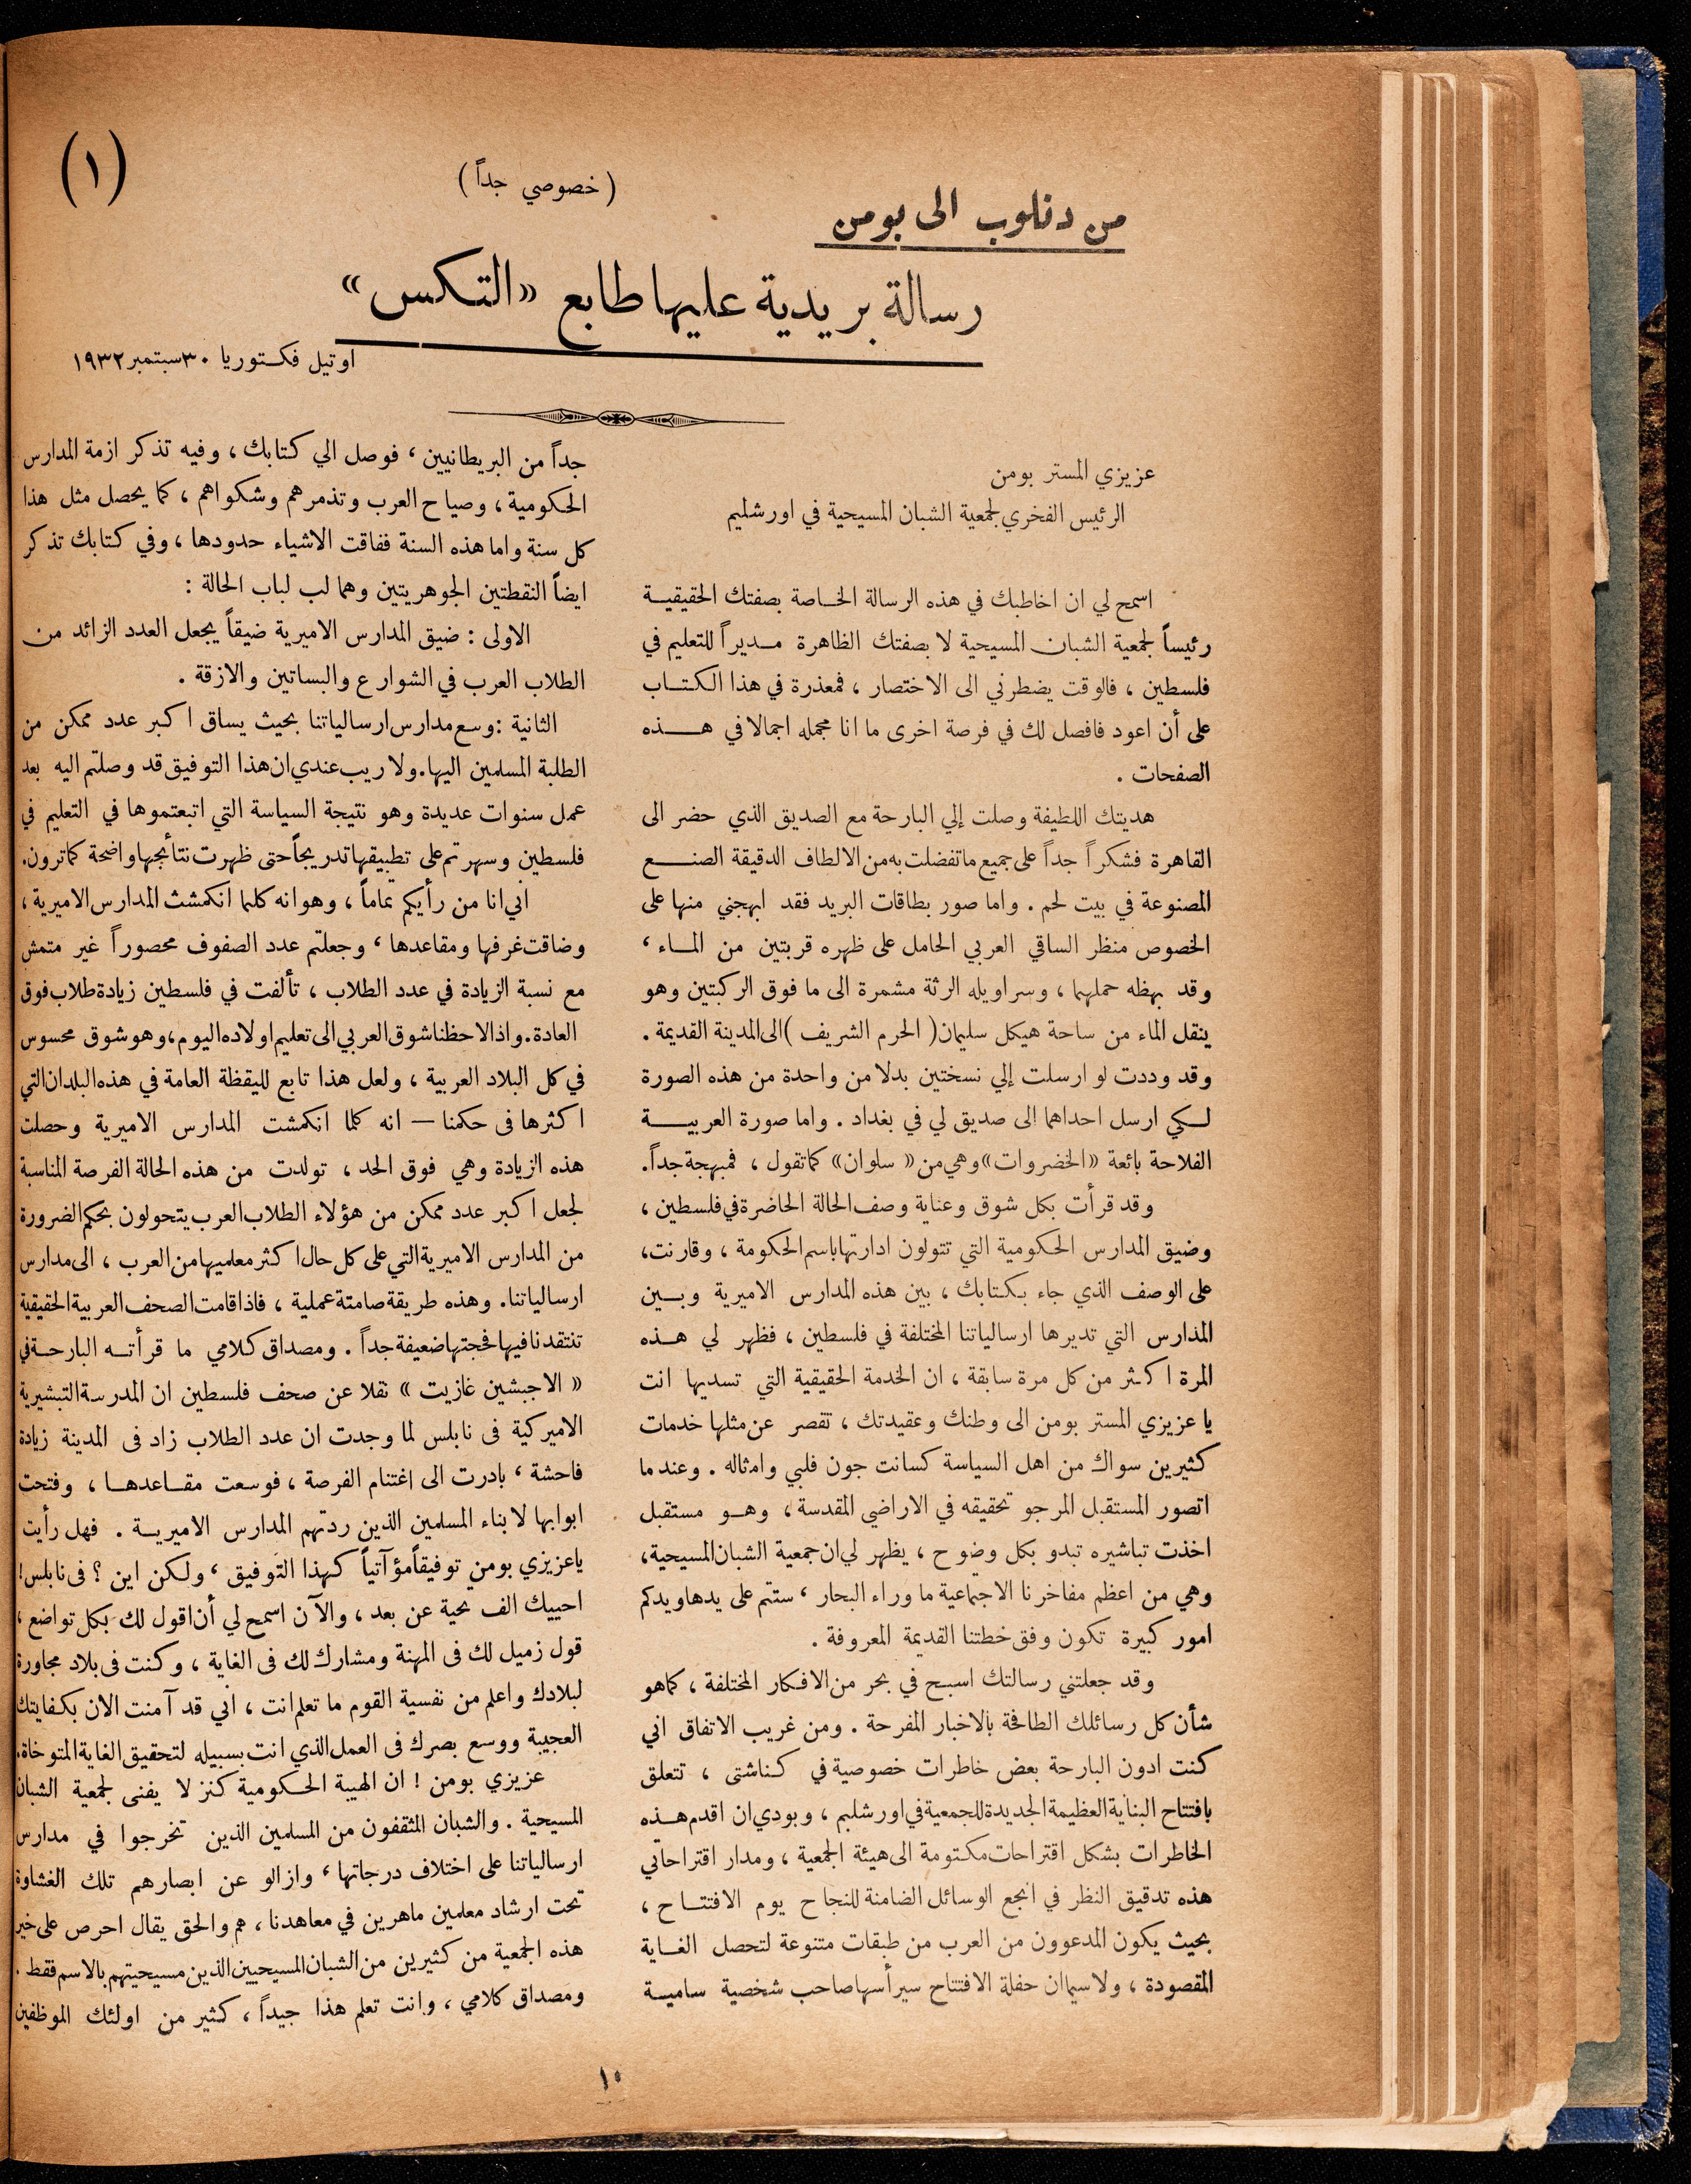 (١)
(خصوصي جداً)
من دنلوب الى بومن
رسالة بريدية عليها طابع «التكس»
اوتيل فكتوريا ٣٠ سبتمبر ١٩٣٢
عزيزي المستر بومن
الرئيس الفخري لجمعية الشبان المسيحية في اورشليم
اسمح لي ان اخاطبك في هذه الرسالة الخاصة بصفتك الحقيقية
رئيساً لجمعية الشبان المسيحية لا بصفتك الظاهرة مديراً للتعليم في
فلسطين ، فالوقت يضطرني الى الاختصار ، فمعذرة في هذا الكتاب
على أن اعود فافصل لك في فرصة اخرى ما انا مجمله اجمالا في هذه
الصفحات .
هديتك اللطيفة وصلت إلي البارحة مع الصديق الذي حضر الى
القاهرة فشكراً جداً على جميع ما تفضلت به من الالطاف الدقيقة الصنع
المصنوعة في بيت لحم . واما صور بطاقات البريد فقد ابهجني منها على
الخصوص منظر الساقي العربي الحامل على ظهره قربتين من الماء ،
وقد بهظه حملهما ، وسراويله الرثة مشمرة الى ما فوق الركبتين وهو
ينقل الماء من ساحة هيكل سليمان ( الحرم الشريف ) الى المدينة القديمة .
وقد وددت لو ارسلت إلي نسختين بدلا من واحدة من هذه الصورة
لكي ارسل احداهما الى صديق لي في بغداد . واما صورة العربية
الفلاحة بائعة «الخضروات» وهي من «سلوان» كما تقول ، فمبهجة جداً.
وقد قرأت بكل شوق وعناية وصف الحالة الحاضرة في فلسطين ،
وضيق المدارس الحكومية التي تتولون ادارتها باسم الحكومة ، وقارنت،
على الوصف الذي جاء بكتابك ، بين هذه المدارس الاميرية وبين
المدارس التي تديرها ارسالياتنا المختلفة في فلسطين ، فظهر لي هذه
المرة اكثر من كل مرة سابقة ، ان الخدمة الحقيقية التي تسديها انت
يا عزيزي المستر بومن الى وطنك وعقيدتك ، تقصر عن مثلها خدمات
كثيرين سواك من اهل السياسة كسانت جون فلبي وامثاله . وعندما
اتصور المستقبل المرجو تحقيقه في الاراضي المقدسة ، وهو مستقبل
اخذت تباشيره تبدو بكل وضوح ، يظهر لي ان جمعية الشبان المسيحية،
وهي من اعظم مفاخرنا الاجتماعية ما وراء البحار ، ستتم على يدها ويدكم
امور كبيرة تكون وفق خطتنا القديمة المعروفة .
وقد جعلتني رسالتك اسبح في بحر من الافكار المختلفة ، كما هو
شأن كل رسائلك الطافحة بالاخبار المفرحة . ومن غريب الاتفاق اني
كنت ادون البارحة بعض خاطرات خصوصية في كناشتى ، تتعلق
بافتتاح البناية العظيمة الجديدة للجمعية في اورشليم ، وبودي ان اقدم هذه
الخاطرات بشكل اقتراحات مكتومة الى هيئة الجمعية ، ومدار اقتراحاتي
هذه تدقيق النظر في انجع الوسائل الضامنة للنجاح يوم الافتتاح ،
بحيث يكون المدعوون من العرب من طبقات متنوعة لتحصل الغاية
المقصودة ، ولا سيما ان حفلة الافتتاح سيرأسها صاحب شخصية سامية
جداً من البريطانيين ، فوصل الي كتابك ، وفيه تذكر ازمة المدارس
الحكومية ، وصياح العرب وتذمرهم وشكواهم ، كما يحصل مثل هذا
كل سنة واما هذه السنة ففاقت الاشياء حدودها ، وفي كتابك تذكر
ايضاً النقطتين الجوهريتين وهما لب لباب الحالة :
الاولى : ضيق المدارس الاميرية ضيقاً يجعل العدد الزائد من
الطلاب العرب في الشوارع والبساتين والازقة .
الثانية : وسع مدارس ارسالياتنا بحيث يساق اكبر عدد ممكن من
الطلبة المسلمين اليها. ولا ريب عندي ان هذا التوفيق قد وصلتم اليه بعد
عمل سنوات عديدة وهو نتيجة السياسة التي اتبعتموها في التعليم في
فلسطين وسهرتم على تطبيقها تدريجاً حتى ظهرت نتائجها واضحة كما ترون.
اني انا من رأيكم تماماً ، وهو انه كلما انكمشت المدارس الاميرية ،
وضاقت غرفها ومقاعدها ، وجعلتم عدد الصفوف محصوراً غير متمش
مع نسبة الزيادة في عدد الطلاب ، تألفت في فلسطين زيادة طلاب فوق
العادة. واذا لاحظنا شوق العربي الى تعليم اولاده اليوم، وهو شوق محسوس
في كل البلاد العربية ، ولعل هذا تابع لليقظة العامة في هذه البلدان التي
اكثرها فى حكمنا — انه كلما انكمشت المدارس الاميرية وحصلت
هذه الزيادة وهي فوق الحد ، تولدت من هذه الحالة الفرصة المناسبة
لجعل اكبر عدد ممكن من هؤلاء الطلاب العرب يتحولون بحكم الضرورة
من المدارس الاميرية التي على كل حال اكثر معلميها من العرب ، الى مدارس
ارسالياتنا. وهذه طريقة صامتة عملية ، فاذا قامت الصحف العربية الحقيقية
تنتقدنا فيها فحجتها ضعيفة جداً . ومصداق كلامي ما قرأته البارحة في
« الاجبشين غازيت » نقلا عن صحف فلسطين ان المدرسة التبشيرية
الاميركية فى نابلس لما وجدت ان عدد الطلاب زاد فى المدينة زيادة
فاحشة ، بادرت الى اغتنام الفرصة ، فوسعت مقاعدها ، وفتحت
ابوابها لابناء المسلمين الذين ردتهم المدارس الاميرية . فهل رأيت
يا عزيزي بومن توفيقاً مؤآتياً كهذا التوفيق ، ولكن اين ؟ فى نابلس!
احييك الف تحية عن بعد ، والآن اسمح لي أن اقول لك بكل تواضع ،
قول زميل لك فى المهنة ومشارك لك فى الغاية ، وكنت فى بلاد مجاورة
لبلادك واعلم من نفسية القوم ما تعلم انت ، اني قد آمنت الان بكفايتك
العجيبة ووسع بصرك فى العمل الذي انت بسبيله لتحقيق الغاية المتوخاة.
عزيزي بومن ! ان الهيبة الحكومية كنز لا يفنى لجمعية الشبان
المسيحية . والشبان المثقفون من المسلمين الذين تخرجوا في مدارس
ارسالياتنا على اختلاف درجاتها ، وازالو عن ابصارهم تلك الغشاوة
تحت ارشاد معلمين ماهرين في معاهدنا ، هم والحق يقال احرص على خير
هذه الجمعية من كثيرين من الشبان المسيحيين الذين مسيحيتهم بالاسم فقط .
ومصداق كلامي ، وانت تعلم هذا جيداً ، كثير من اولئك الموظفين
١٠